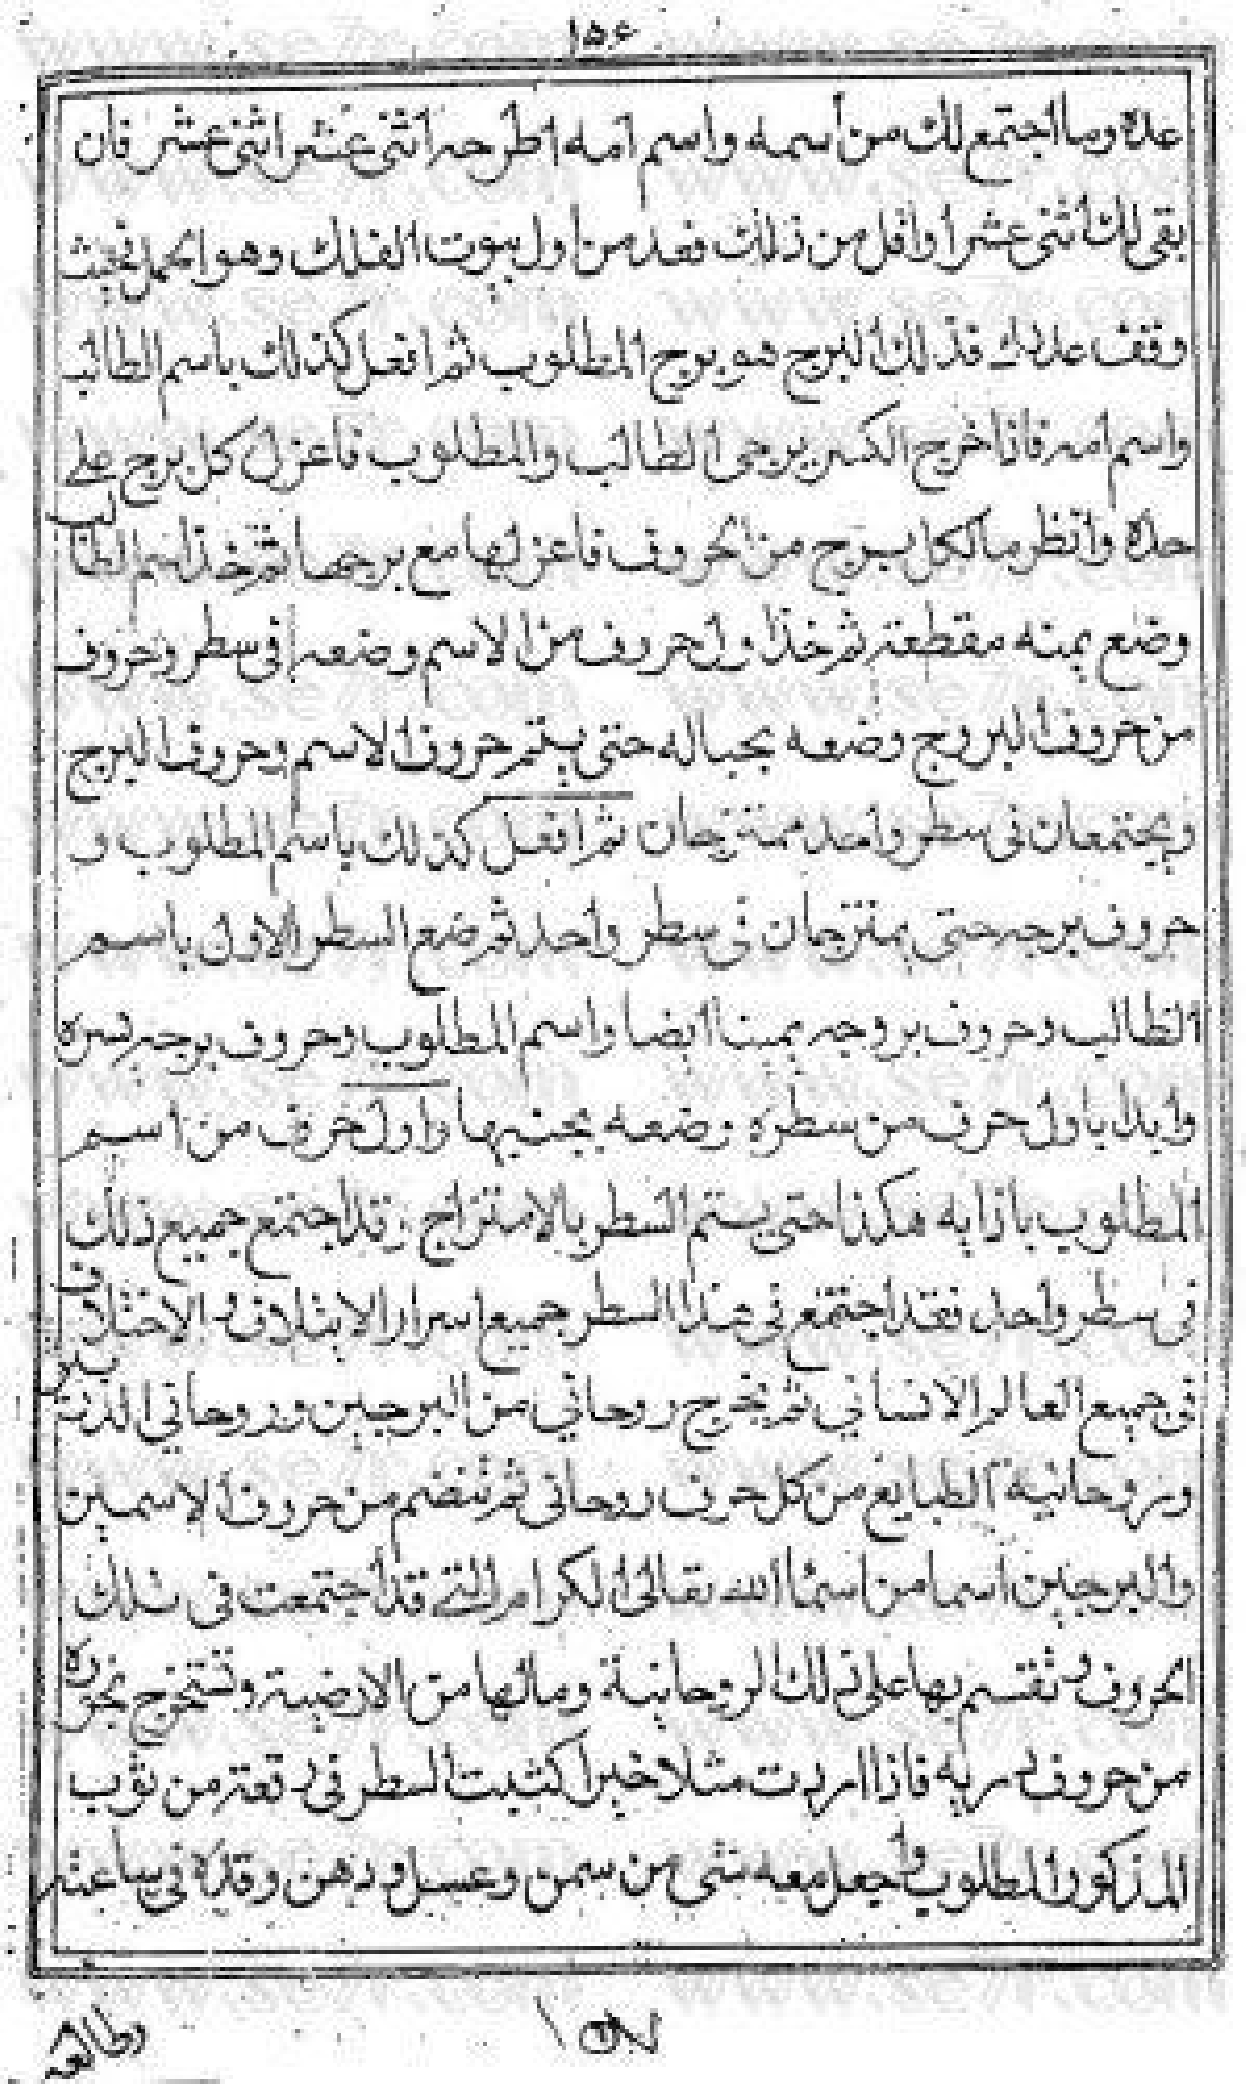 ١٥٦
عدة وما اجتمع لك من اسمه واسم امه اطرحه اثنى عشر اثنى عشر فان
بقى لك اثنى عشر او اقل من ذلك فعد من اول بيوت الفلك وهو الحمل فحيث
وقف عددك فذلك البرج هو برج المطلوب ثم افعل كذلك باسم الطالب
واسم امه فاذا خرج الكسر برجى الطالب والمطلوب فاعزل كل برج على
حدة وانظر ما لكل برج من الحروف فاعزلها مع برجها ثم خذ اسم الطالب
وضع يمنه مقطعة ثم خذ اول حروف من الاسم وضعه فى سطر وحروف
من حروف البروج وضعه بحياله حتى يتم حروف الاسم وحروف البرج
ويجتمعان فى سطر واحد ممتزجان ثم افعل كذلك باسم المطلوب و
حروف برجه حتى يمتزجان فى سطر واحد ثم ضع السطر الاول باسم
الطالب وحروف بروجه يمينا ايضا واسم المطلوب وحروف برجه يسره
وابدا باول حرف من سطره وضعه بجنبها واول حرف من اسم
المطلوب بازايه هكذا حتى يستم السطر بالامتزاج وقد اجتمع جميع ذلك
فى سطر واحد فقد اجتمع فى هذا السطر جميع اسرار الايتلاف والاختلاف
فى جميع العالم الانسانى ثم يخرج روحانى من البرجين وروحانى
وروحانية الطبايع من كل حرف روحانى ثم تنضم من حروف الاسمين
والبرجين اسما من اسما الله تعالى الكرام التى قد اجتمعت فى تلك
الحروف وتقسم بها على تلك الروحانية ومالها من الارضية وتستخرج بخوره
من حروف فاذا اردت مثلا خيرا كتبت السطر فى رقعة من ثوب
المذكور المطلوب واجعل معه شى من سمن وعسل ودهن وقده فى ساعته
١٥٧
وطالعه